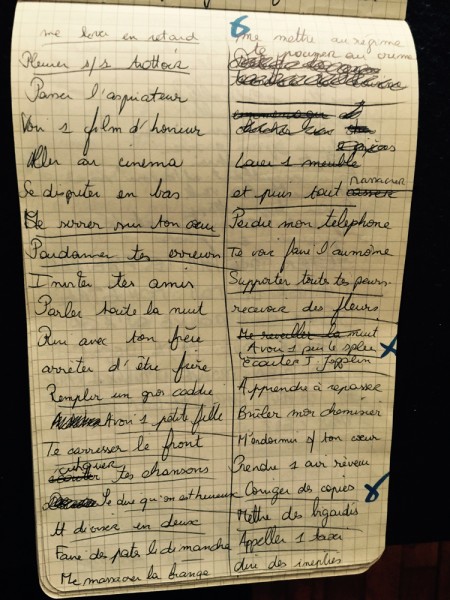 me lever en retard
Pleurer s/s trottoir
Passer l'aspirateur
Voir 1 film d'horreur
Aller au cinéma
Se disputer en bas
Me serrer sur ton cœur
Pardonner tes erreurs
Inviter tes amis
Parler toute la nuit
Rire avec ton frère
arrêter d'être fière
Remplir un gros caddie
Avoir 1 petite fille
Te carresser le front
critiquer
écouter tes chansons
Se dire qu'on est heureux
Et divorcer en deux
Faire des pates le dimanche
Me massacrer la frange
6
me mettre au régime
te pousser au crime
Laver 1 meuble
et puis tout
massacrer
casser
Perdre mon telephone
Te voir faire l'aumône
Supporter toutes tes peurs
recevoir des fleurs
Me reveiller la nuit
Avoir 1 peu le spleen
Ecouter J. Jopplin
Apprendre à repasser
Brûler mon chemisier
M'endormir s/ ton cœur
Prendre 1 air rêveur
Corriger des copies
Mettre des bigoudis
Appeller 1 taxi
dire des inepties